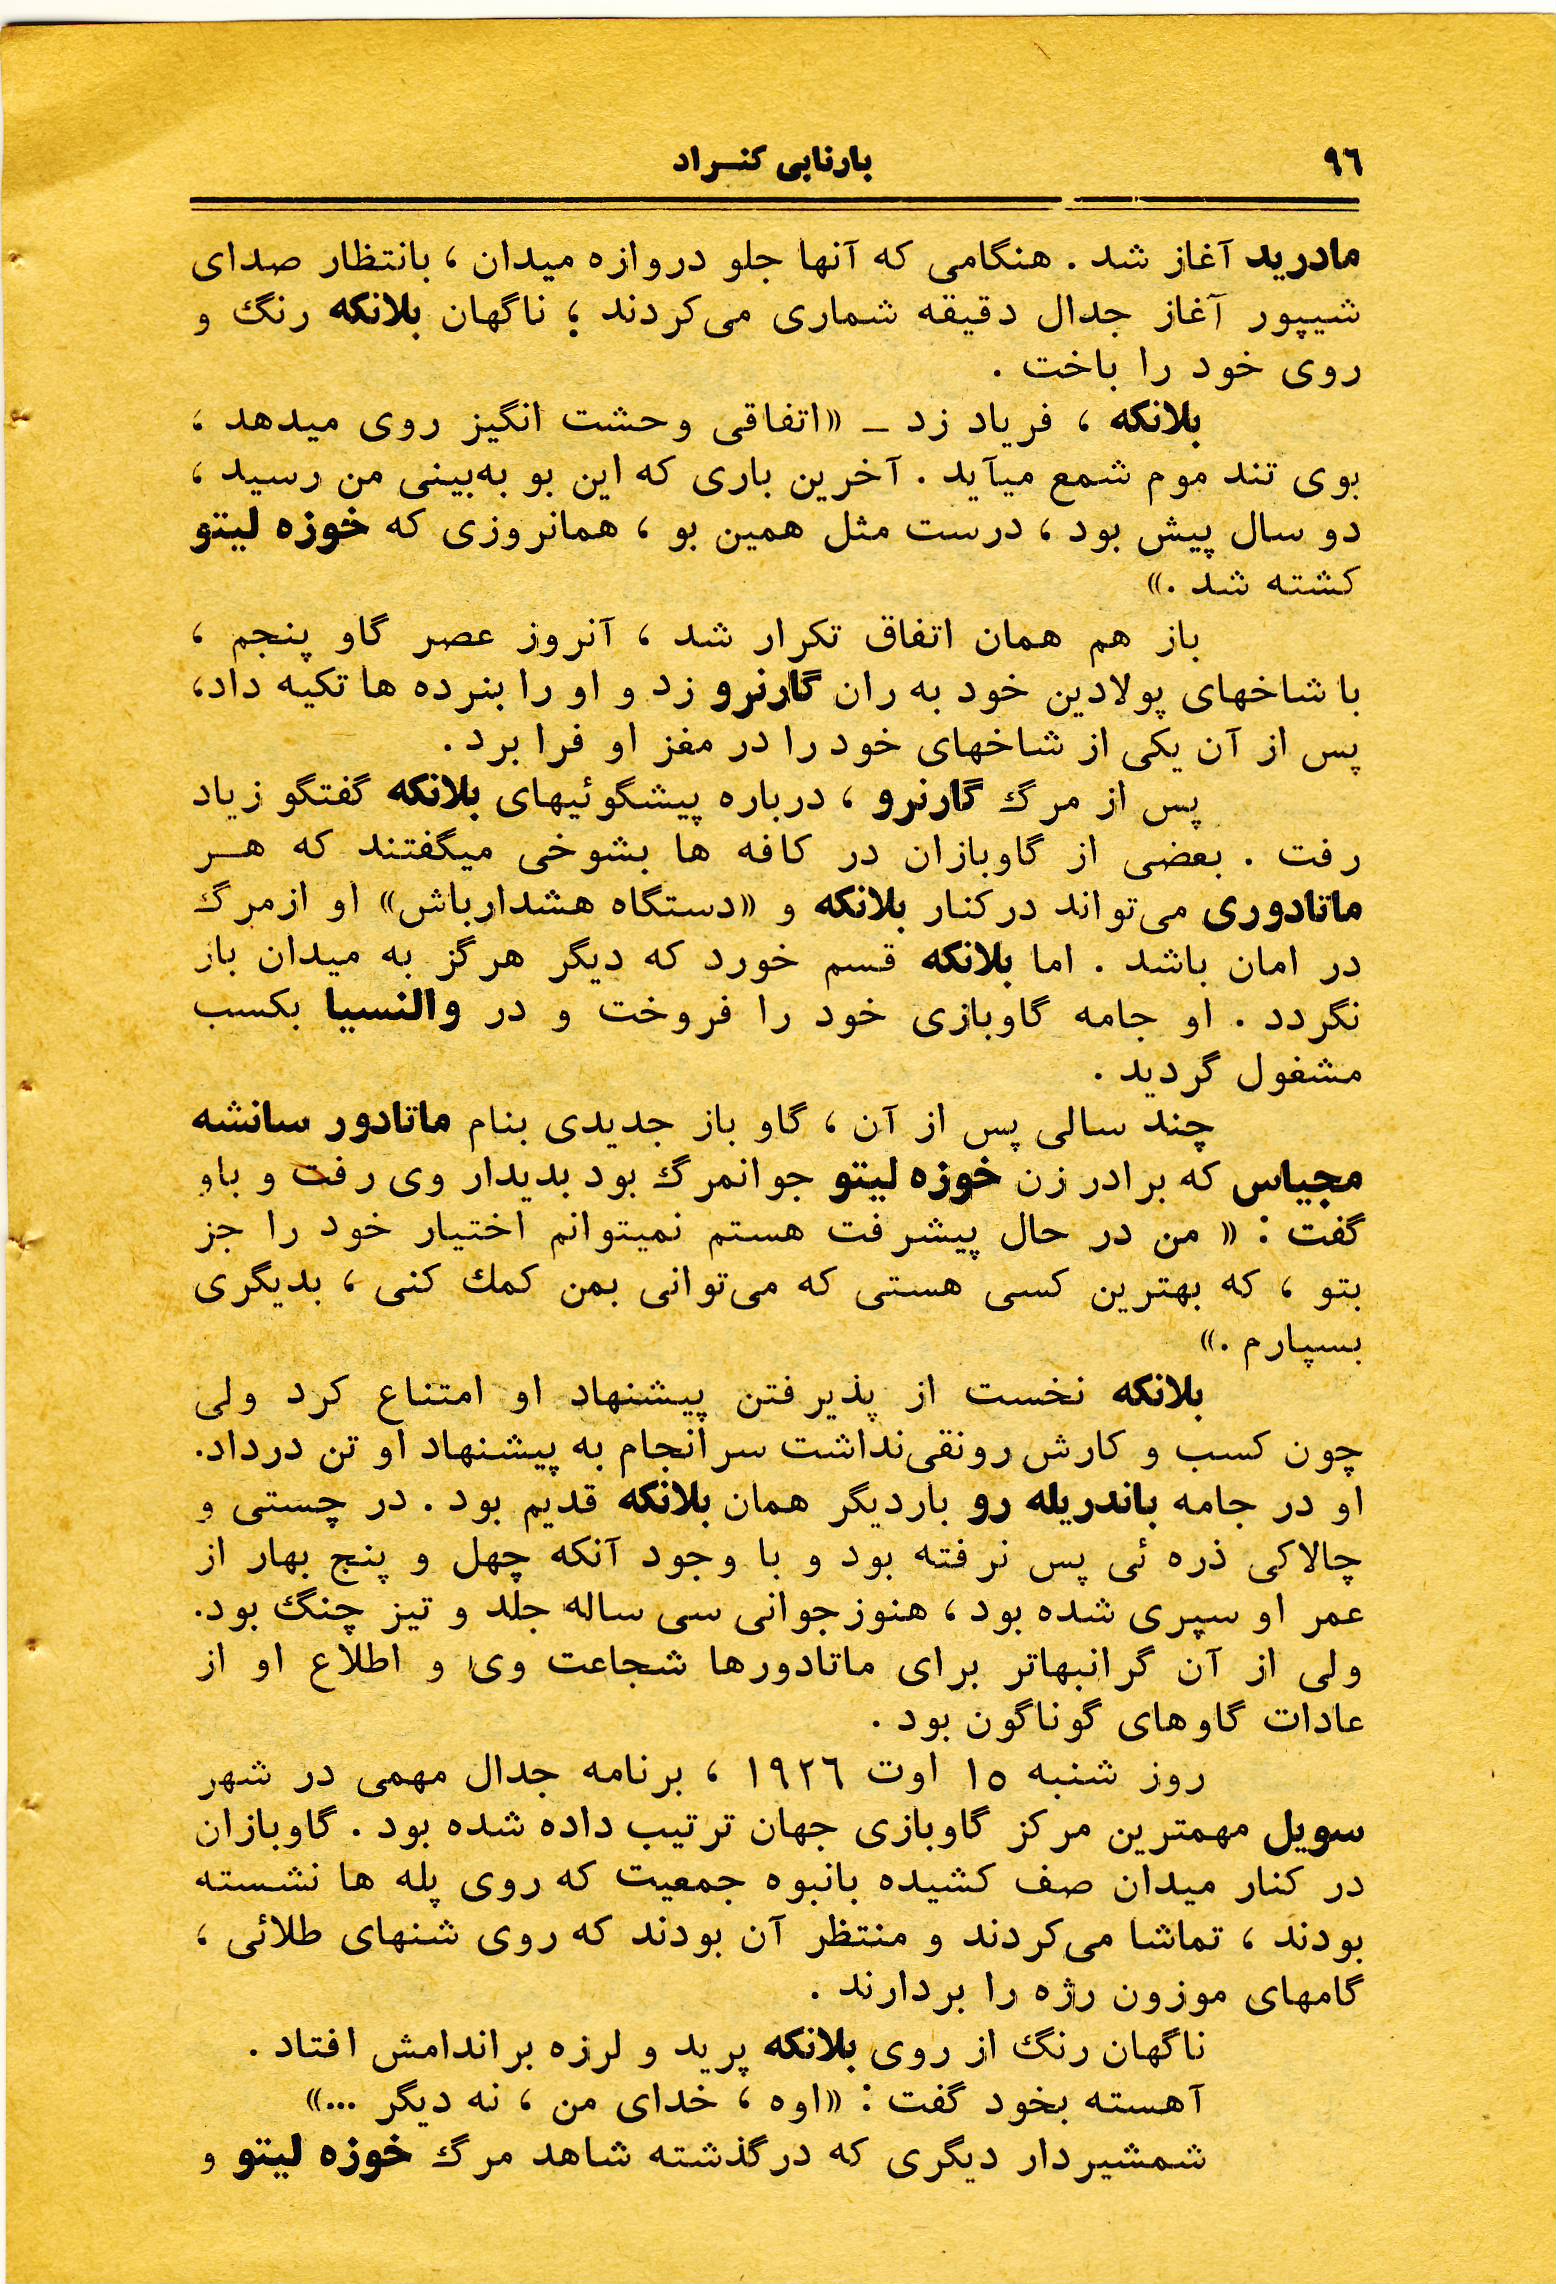 ۹۶
بارنابی کنـراد
مادرید آغاز شد . هنگامی که آنها جلو دروازه میدان ، بانتظار صدای
شیپور آغاز جدال دقیقه شماری می‌کردند ؛ ناگهان بلانکه رنگ و
روی خود را باخت .
بلانکه ، فریاد زد ـ «اتفاقی وحشت انگیز روی میدهد ،
بوی تند موم شمع میآید . آخرین باری که این بو به‌بینی من رسید ،
دو سال پیش بود ، درست مثل همین بو ، همانروزی که خوزه لیتو
کشته شد .»
باز هم همان اتفاق تکرار شد ، آنروز عصر گاو پنجم ،
با شاخهای پولادین خود به ران گارنرو زد و او را بنرده ها تکیه داد،
پس از آن یکی از شاخهای خود را در مغز او فرا برد .
پس از مرگ گارنرو ، درباره پیشگوئیهای بلانکه گفتگو زیاد
رفت . بعضی از گاوبازان در کافه ها بشوخی میگفتند که هـر
ماتادوری می‌تواند درکنار بلانکه و «دستگاه هشدارباش» او ازمرگ
در امان باشد . اما بلانکه قسم خورد که دیگر هرگز به میدان باز
نگردد . او جامه گاوبازی خود را فروخت و در والنسیا بکسب
مشغول گردید .
چند سالی پس از آن ، گاو باز جدیدی بنام ماتادور سانشه
مجیاس که برادر زن خوزه لیتو جوانمرگ بود بدیدار وی رفت و باو
گفت : « من در حال پیشرفت هستم نمیتوانم اختیار خود را جز
بتو ، که بهترین کسی هستی که می‌توانی بمن کمك کنی ، بدیگری
بسپارم .»
بلانکه نخست از پذیرفتن پیشنهاد او امتناع کرد ولی
چون کسب و کارش رونقی‌نداشت سرانجام به پیشنهاد او تن درداد.
او در جامه باندریله رو باردیگر همان بلانکه قدیم بود . در چستی و
چالاکی ذره ئی پس نرفته بود و با وجود آنکه چهل و پنج بهار از
عمر او سپری شده بود ، هنوزجوانی سی ساله جلد و تیز چنگ بود.
ولی از آن گرانبهاتر برای ماتادورها شجاعت وی و اطلاع او از
عادات گاوهای گوناگون بود .
روز شنبه ۱۵ اوت ۱۹۲۶ ، برنامه جدال مهمی در شهر
سویل مهمترین مرکز گاوبازی جهان ترتیب داده شده بود . گاوبازان
در کنار میدان صف کشیده بانبوه جمعیت که روی پله ها نشسته
بودند ، تماشا می‌کردند و منتظر آن بودند که روی شنهای طلائی ،
گامهای موزون رژه را بردارند .
ناگهان رنگ از روی بلانکه پرید و لرزه براندامش افتاد .
آهسته بخود گفت : «اوه ، خدای من ، نه دیگر ...»
شمشیردار دیگری که درگذشته شاهد مرگ خوزه لیتو و